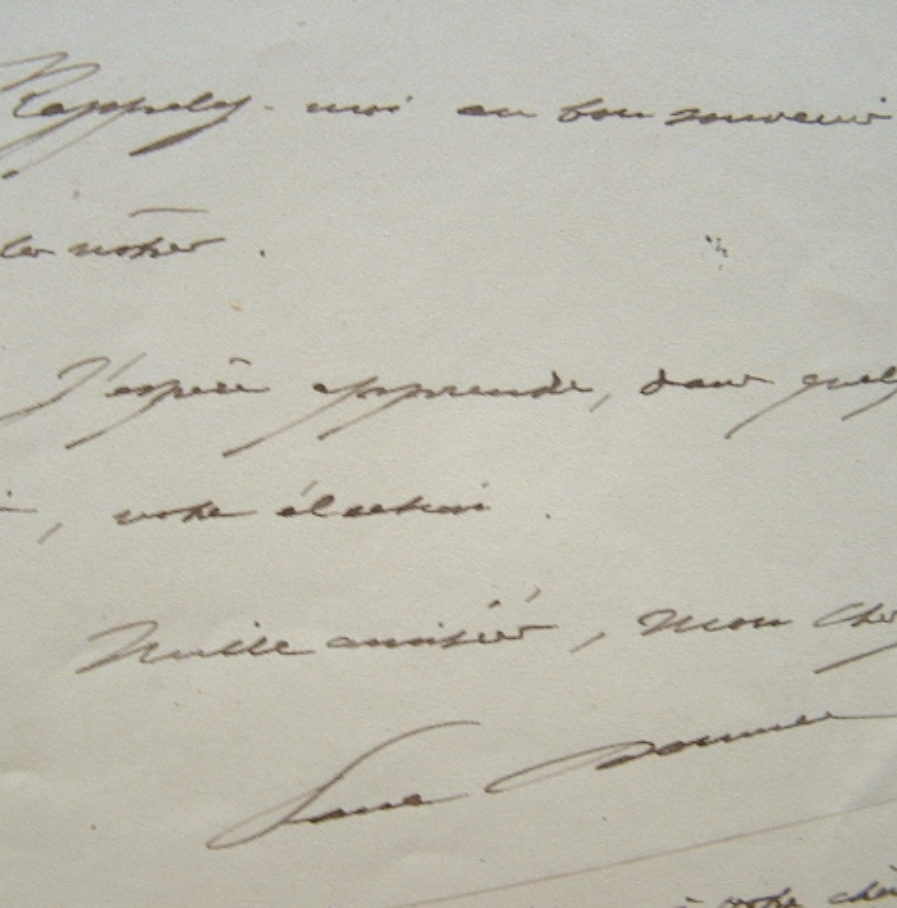 Rappelez-moi au bon souvenir
les nôtres.
J'espère apprendre, dans quelq
, votre élection.
Mille amitiés, mon cher
à votre chè